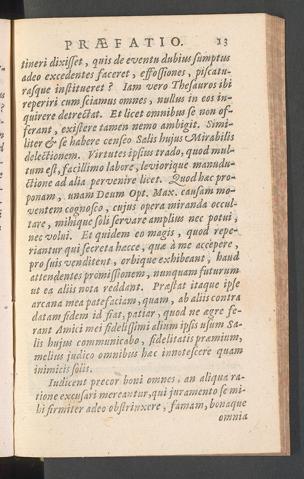 PRÆFATIO. 13
tineri dixisset, quis de eventu dubius sumptus
adeo excedentes faceret, effossiones, piscatu-
rasque institueret? Iam vero Thesauros ibi
reperiri cum sciamus omnes, nullus in eos in-
quirere detrectat. Et licet omnibus se non of-
ferant, existere tamen nemo ambigit. Simi-
liter & se habere censeo Salis hujus Mirabilis
delectionem. Virtutes ipsius trado, quod mul-
tum est, facillimo labore, leviorique manudu-
ctione ad alia pervenire licet. Quod hæc pro-
ponam, unam Deum Opt. Max. causam mo-
ventem cognosco, cujus opera miranda occul-
tare, mihique soli servare amplius nec potui,
nec volui. Et quidem eo magis, quod repe-
riantur qui secreta hæcce, quæ à me accepêre,
pro suis venditent, orbique exhibeant, haud
attendentes promissionem, nunquam futurum
ut ea aliis nota reddant. Præstat itaque ipse
arcana mea patefaciam, quam, ab aliis contra
datam fidem id fiat, patiar, quod ne ægre fe-
rant Amici mei fidelissimi alium ipsis usum Sa-
lis hujus communicabo, fidelitatis præmium,
melius judico omnibus hæc innotescere quam
inimicis solis.
Iudicent precor boni omnes, an aliqua ra-
tione excusari mereantur, qui juramento se mi-
hi firmiter adeo obstrinxere, famam, bonaque
omnia